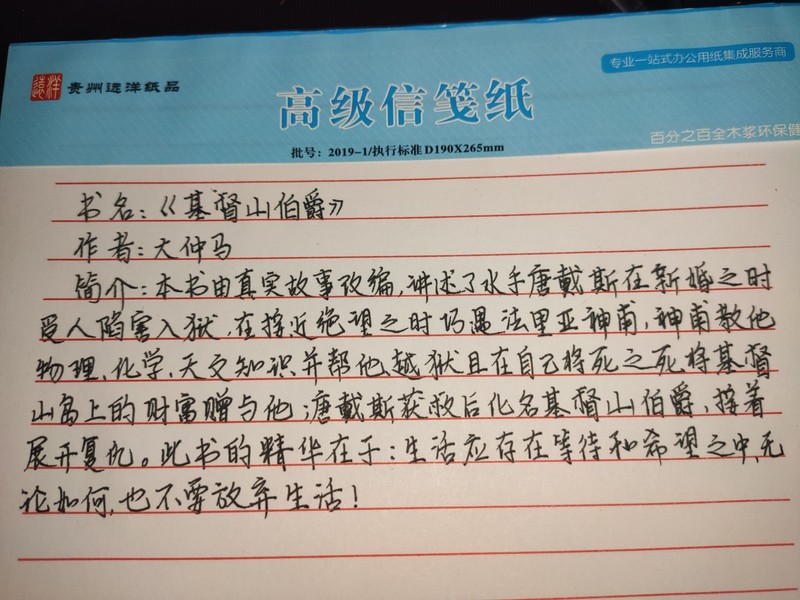 遠洋 贵州远洋纸品
专业一站式办公用纸集成服务商
高级信笺纸
百分之百全木浆环保健
批号：2019-1/执行标准D190X265mm
书名：《基督山伯爵》
作者：大仲马
简介：本书由真实故事改编，讲述了水手唐戴斯在新婚之时
受人陷害入狱，在接近绝望之时巧遇法里亚神甫，神甫教他
物理、化学、天文知识并帮他越狱且在自己将死之死将基督
山岛上的财富赠与他；唐戴斯获救后化名基督山伯爵，接着
展开复仇。此书的精华在于：生活应存在等待和希望之中，无
论如何，也不要放弃生活！